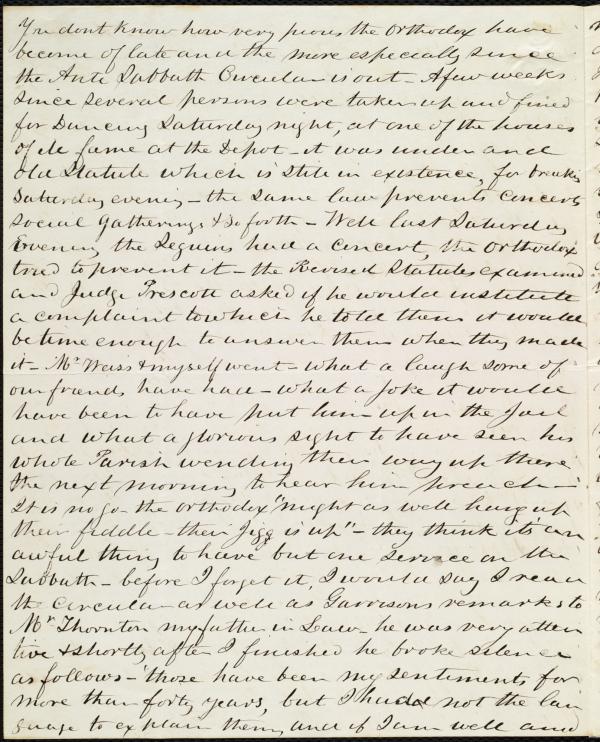 You dont know how very pious the Orthodox have
become of late and the more especially since
the Anti Sabbath Circular is out - A few weeks
since several persons were taken up and fined
for Dancing Saturday night, at one of the houses
of ill fame at the Depot - it was under and
old Statute which is still in existence, for breaking
Saturday evening - the same law prevents concerts
social gatherings & so forth - Well last Saturday
Evening the Seguins had a Concert, the Orthodox
tried to prevent it - the Revised Statutes examined
and Judge Prescott asked if he would institute
a complaint to which he told them it would
be time enough to answer them when they made
it - Mr Weiss & myself went - what a laugh some of
our friends have had - what a joke it would
have been to have put him up in the Jail
and what a glorious sight to have seen his
whole Parish wending their way up there
the next morning to hear him preach -
It is no go - the orthodox "might as well hang up
their fiddle - their Jigg is up" - they think it's an
awful thing to have but one service on the
Sabbath - before I forget it, I would say I read
the circular as well as Garrisons remarks to
Mr Thornton my father in Law - he was very atten
tive & shortly after I finished he broke silence
as follows - "those have been my sentiments for
more than forty years, but I hadd not the lan
guage to explain them, and if I am well and